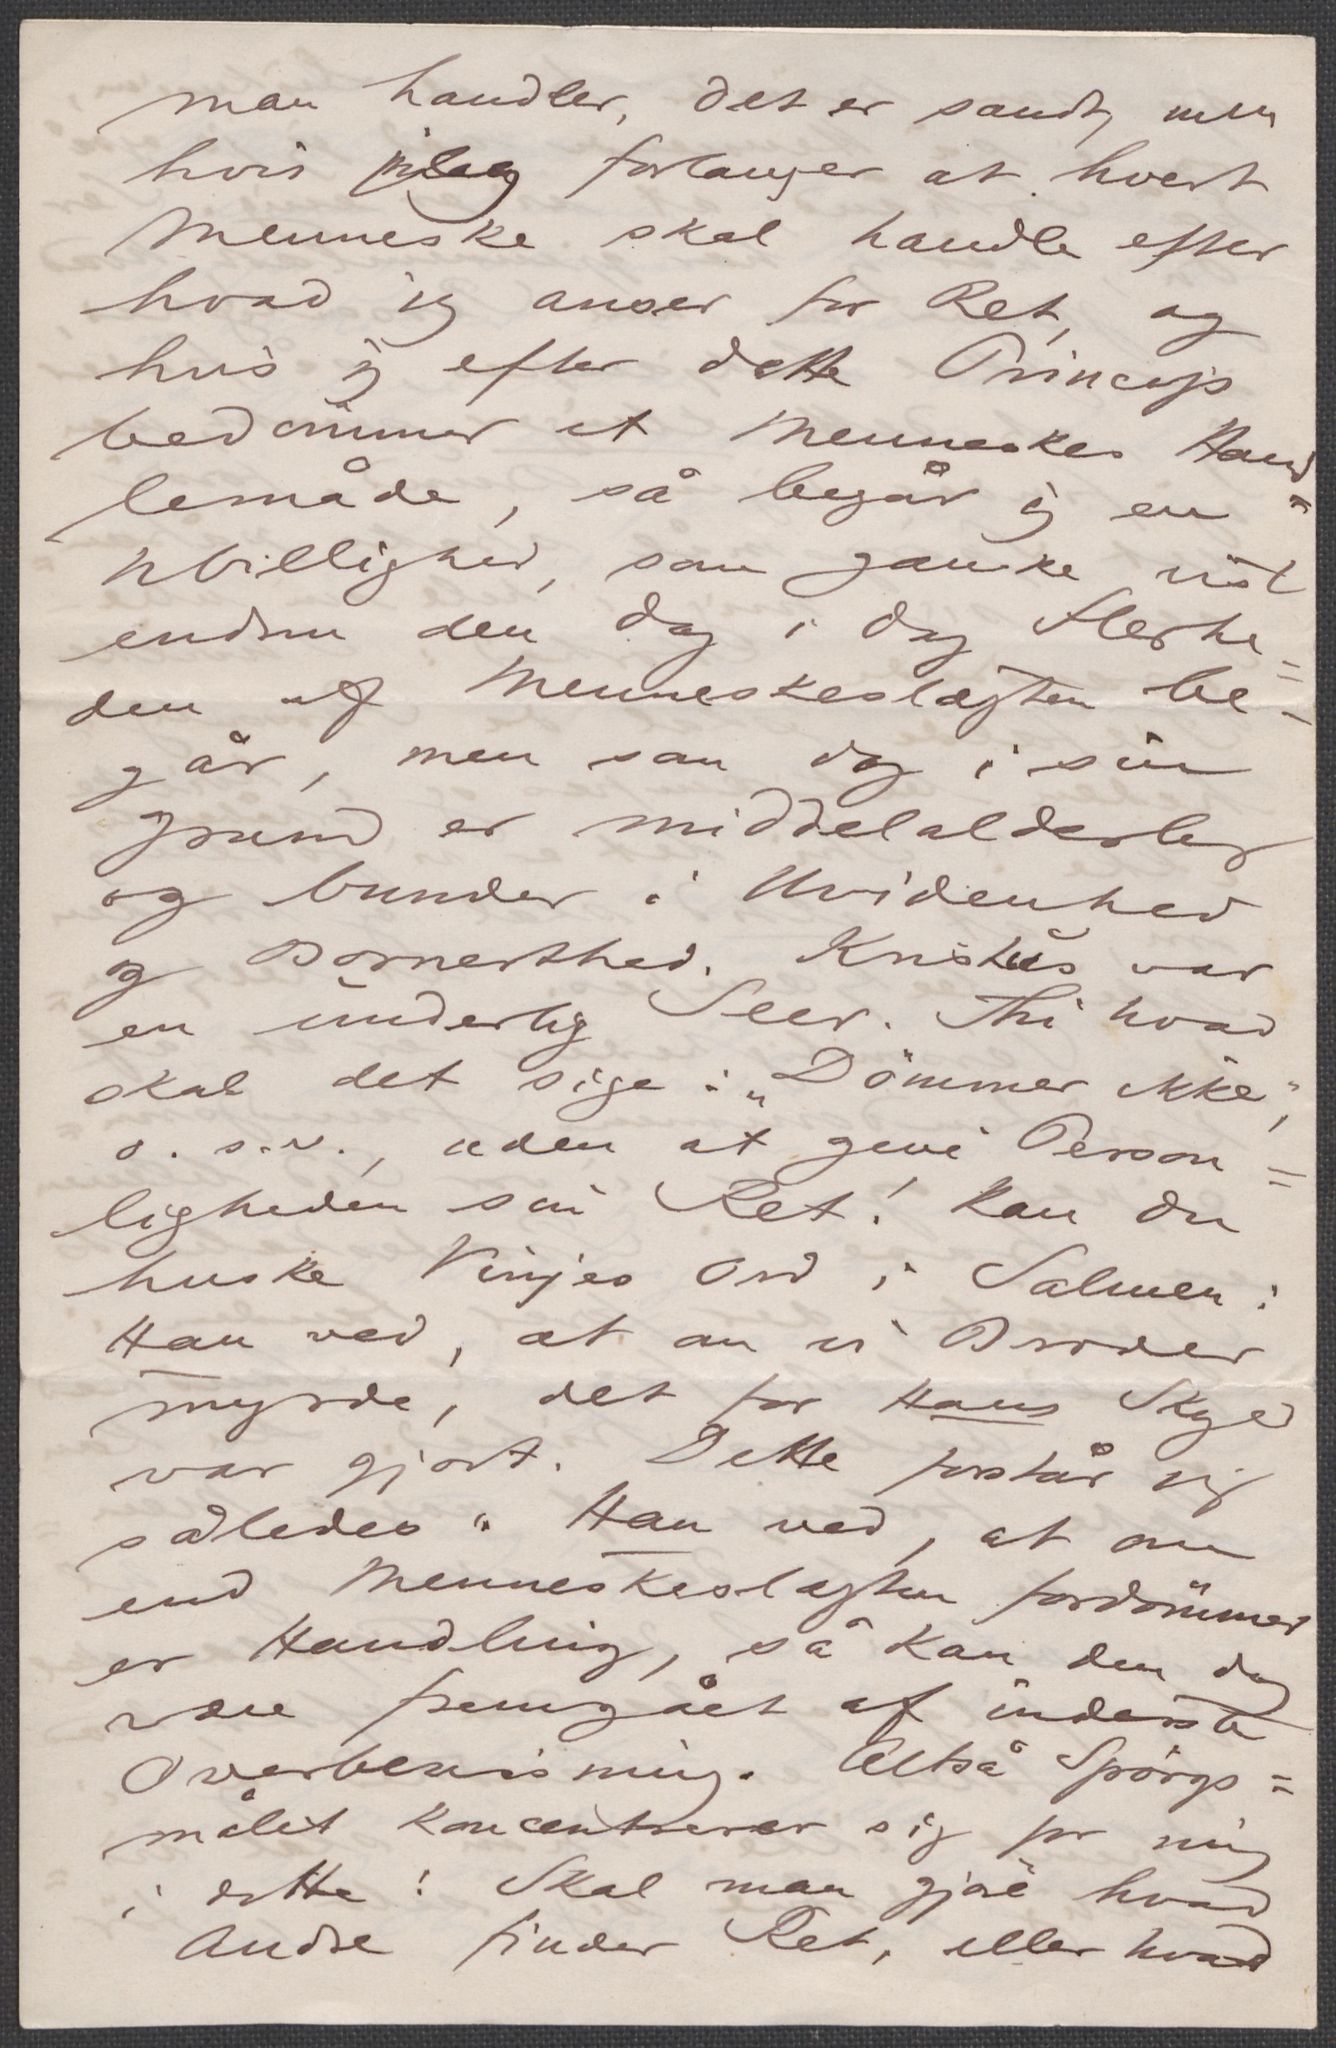 man handler, det er sandt, men
hvis jeg forlanger at hvert
Menneske skal handle efter
hvad jeg anser for Ret, og
hvis jeg efter dette Princip
bedömmer et Menneskes Hand=
lemåde, så begår jeg en
Ubillighed, som ganske vist
endnu den Dag i Dag Flerhe=
den af Menneskeslægten be=
går, men som dog i sin
Grund er middelalderlig
og bunder i Uvidenhed
og Bornerthed. Kristus var
en underlig Seer. Thi hvad
skal det sige: „Dömmer ikke",
o. s. v., uden at give Person=
ligheden sin Ret! Kan du
huske Vinjes Ord i Salmen:
Han ved, at om vi Broder
myrde, det for Hans Skyld
var gjort. Dette forstår jeg
således: Han ved, at om
end Menneskeslægten fordömmer
en Handling, så kan den dog
være fremgået af inderste
Overbevisning. Altså Spörgs=
målet koncentrerer sig for mig
i dette: Skal man gjöre hvad
Andre finder Ret, eller hvad